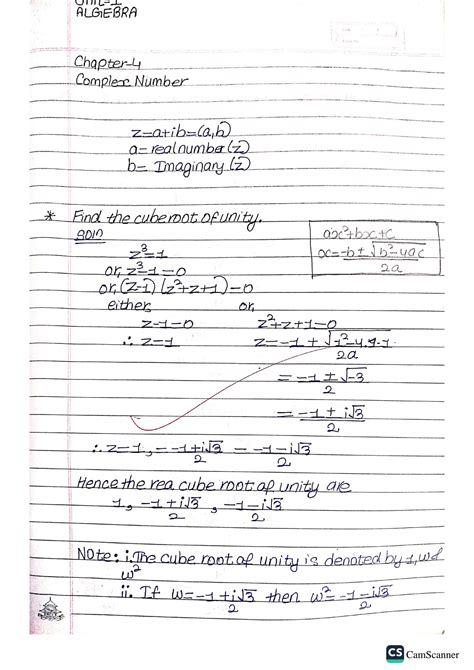 Unit-1
ALGEBRA
Chapter-4
Complex Number
z=a+ib=(a,b)
a= real number (z)
b= Imaginary (z)
* Find the cube root of unity.
Soln
ax²+bx+c
x=-b±√b²-4ac
2a
z³=1
or, z³-1=0
or, (z-1) (z²+z+1)=0
either, or,
z-1=0 z²+z+1=0
∴ z=1 z= -1 ± √1²-4.1.1
2a
= -1 ± √-3
2
= -1 ± i√3
2
∴ z=1, -1+i√3 -1-i√3
2 2
Hence the rea cube root of unity are
1, -1+i√3, -1-i√3
2 2
NOTE: i. The cube root of unity is denoted by 1, w &
w²
ii. If w= -1+i√3 then w²= -1-i√3
2 2
CS CamScanner